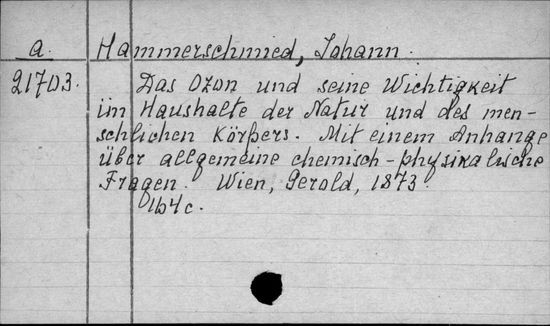 a. Hammerschmied, Johann.
21703. Das Ozon und seine Wichtigkeit
im Haushalte der Natur und des men-
schlichen Körpers. Mit einem Anhange
über allgemeine chemisch-physikalische
Fragen. Wien, Gerold, 1873.